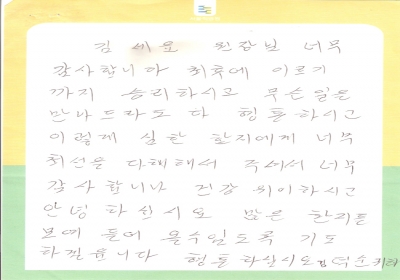 김 세 모 원감님 너무
감사합니다 최후에 이르기
까지 승리하시고 무슨일을
만나드라도 다 형통하시고
이렇게 심한 환자에게 너무
최선을 다해해서 주셔서 너무
감사합니다 건강 위이하시고
안녕하십시요 많은 환자들
보며 돌에 올수있도록 기도
하길합니다 형통하십시요 김덕순